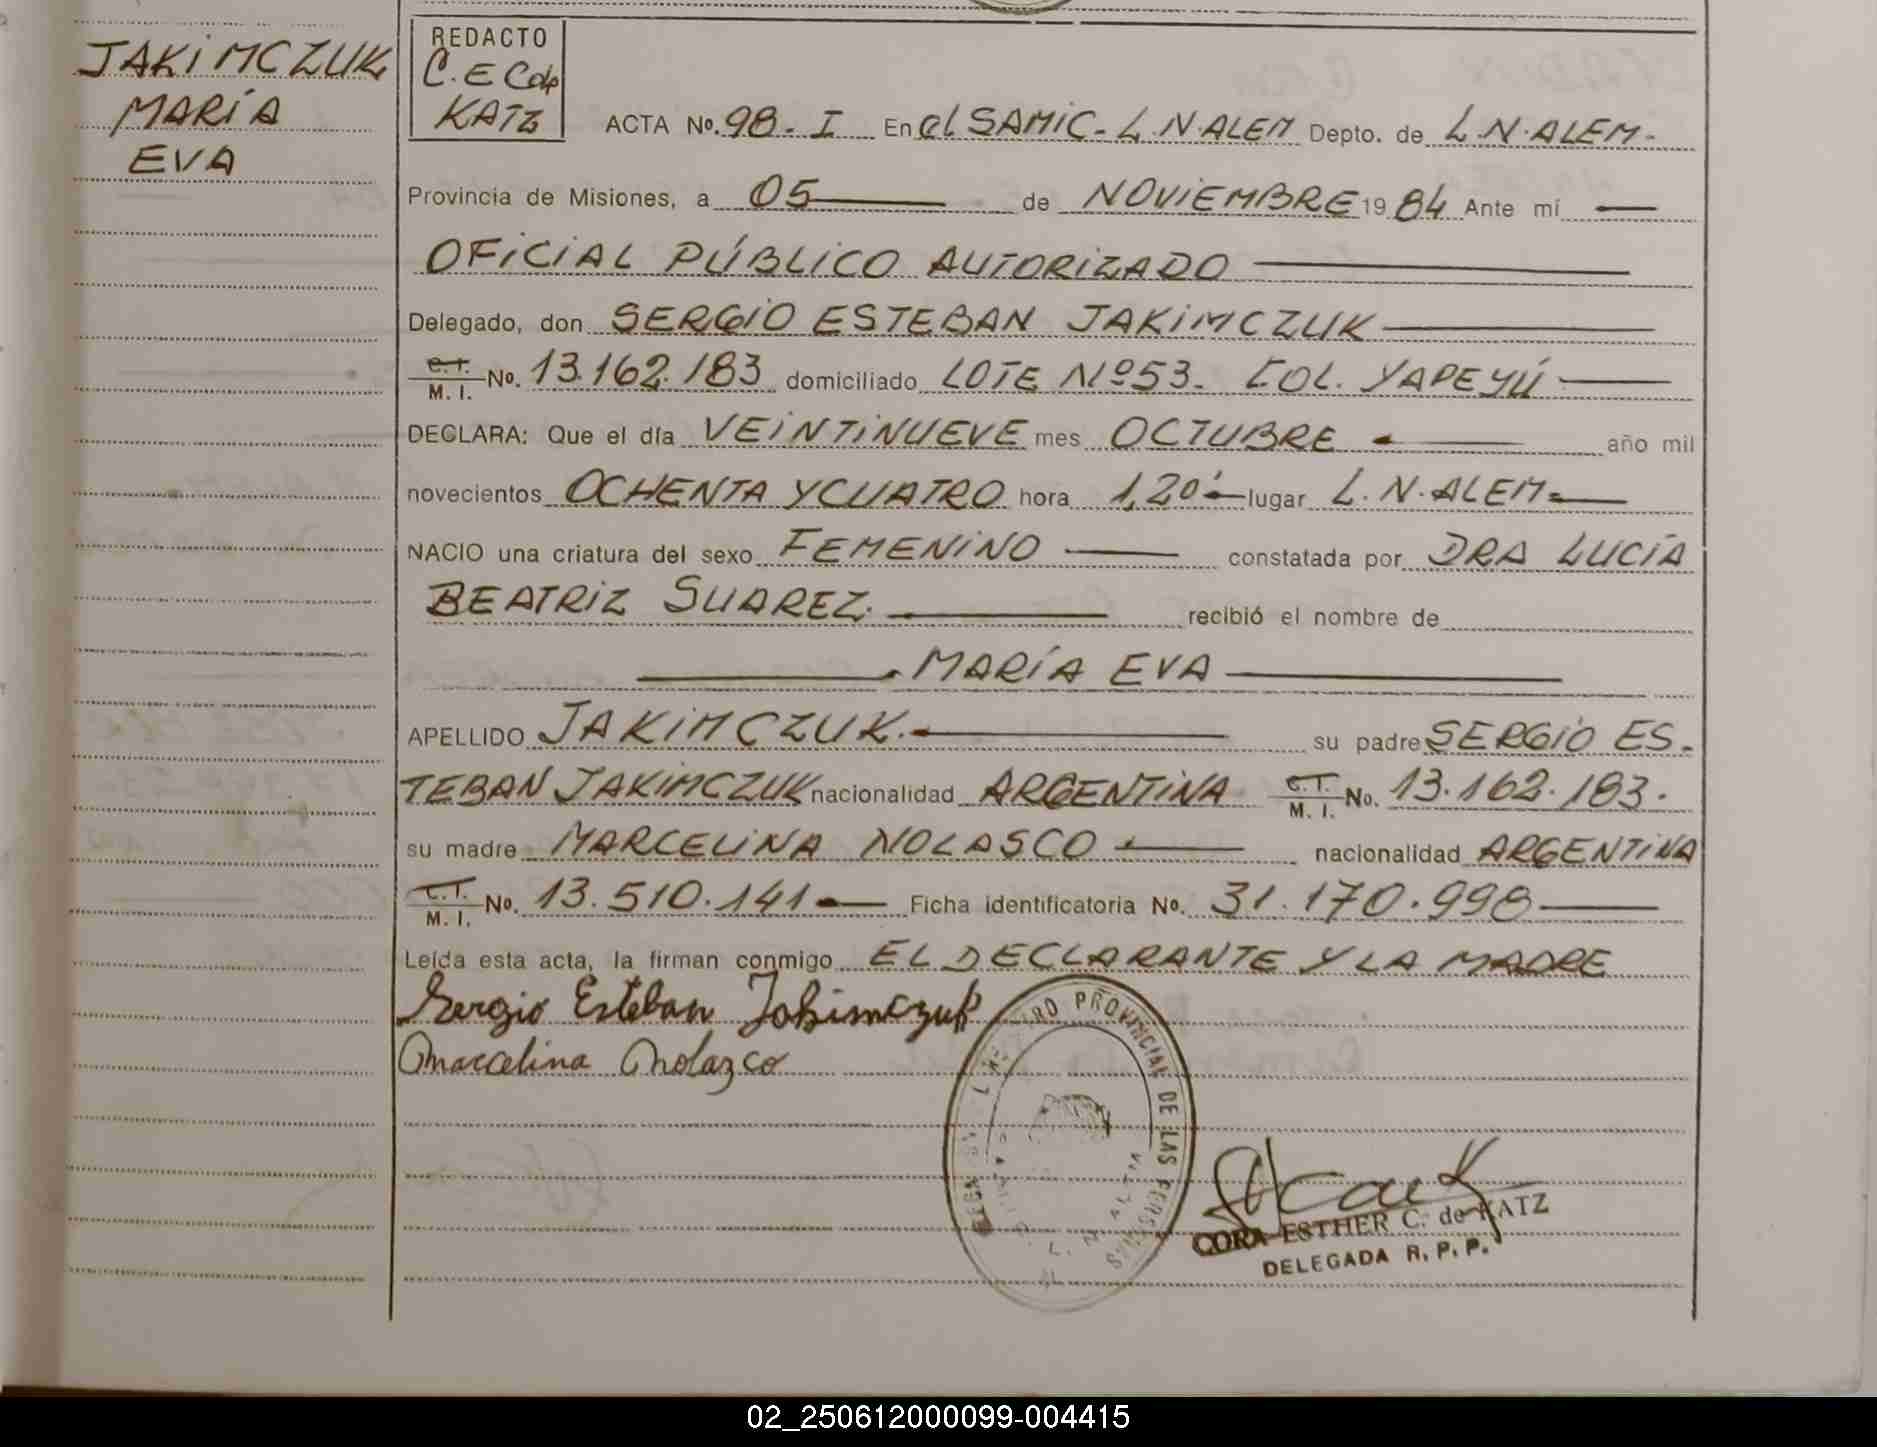 JAKIMCZUK
MARÍA
EVA
REDACTO
C. E C de
KATZ
ACTA No. 98 - I En el SAMIC - L. N. ALEM Depto. de L. N. ALEM -
Provincia de Misiones, a 05 de NOVIEMBRE 19 84 Ante mí
OFICIAL PÚBLICO AUTORIZADO
Delegado, don SERGIO ESTEBAN JAKIMCZUK
C.I. M. I. No. 13.162.183 domiciliado LOTE Nº 53 - COL. YAPEYÚ
DECLARA: Que el día VEINTINUEVE mes OCTUBRE año mil
novecientos OCHENTA Y CUATRO hora 1,20' lugar L. N. ALEM
NACIO una criatura del sexo FEMENINO constatada por DRA LUCÍA
BEATRIZ SUAREZ. recibió el nombre de
MARÍA EVA
APELLIDO JAKIMCZUK. su padre SERGIO ES-
TEBAN JAKIMCZUK nacionalidad ARGENTINA C.I. M. I. No. 13.162.183.
su madre MARCELINA NOLASCO nacionalidad ARGENTINA
C.I. M. I. No. 13.510.141 Ficha identificatoria No. 31.170.998
Leída esta acta, la firman conmigo EL DECLARANTE Y LA MADRE
Sergio Esteban Jakimczuk
Marcelina Nolazco
PROVINCIAL DE LAS
CORA ESTHER C. de KATZ
DELEGADA R. P. P.
02_250612000099-004415